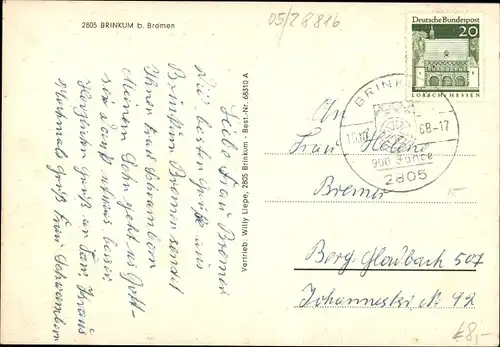 2805 BRINKUM b. Bremen
05/28816
Liebe Frau Bremer
Die besten Grüße aus
Brinkum Bremen sendet
Ihnen Frau Schwambern
Meinem Sohn geht es Gott-
sei Dank etwas besser
Herzliche Grüße an Fam.
Nochmals Gruß Frau Schwambern
Vertrieb: Willy Liepe, 2805 Brinkum - Best.-Nr. 68310 A
Deutsche Bundespost
20
LORSCH/HESSEN
BRINKUM
68-17
900 Jahre
2805
An
Frau Helene
Bremer
Berg. Gladbach 507
Johannesstr. Nr. 42
€8,-